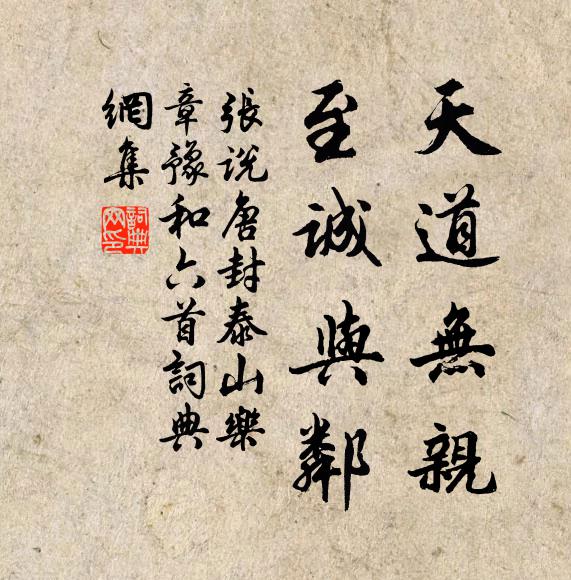 天道無親
至誠與鄰
張說唐封泰山樂
章豫和六首詞典
網集
詞典
网印